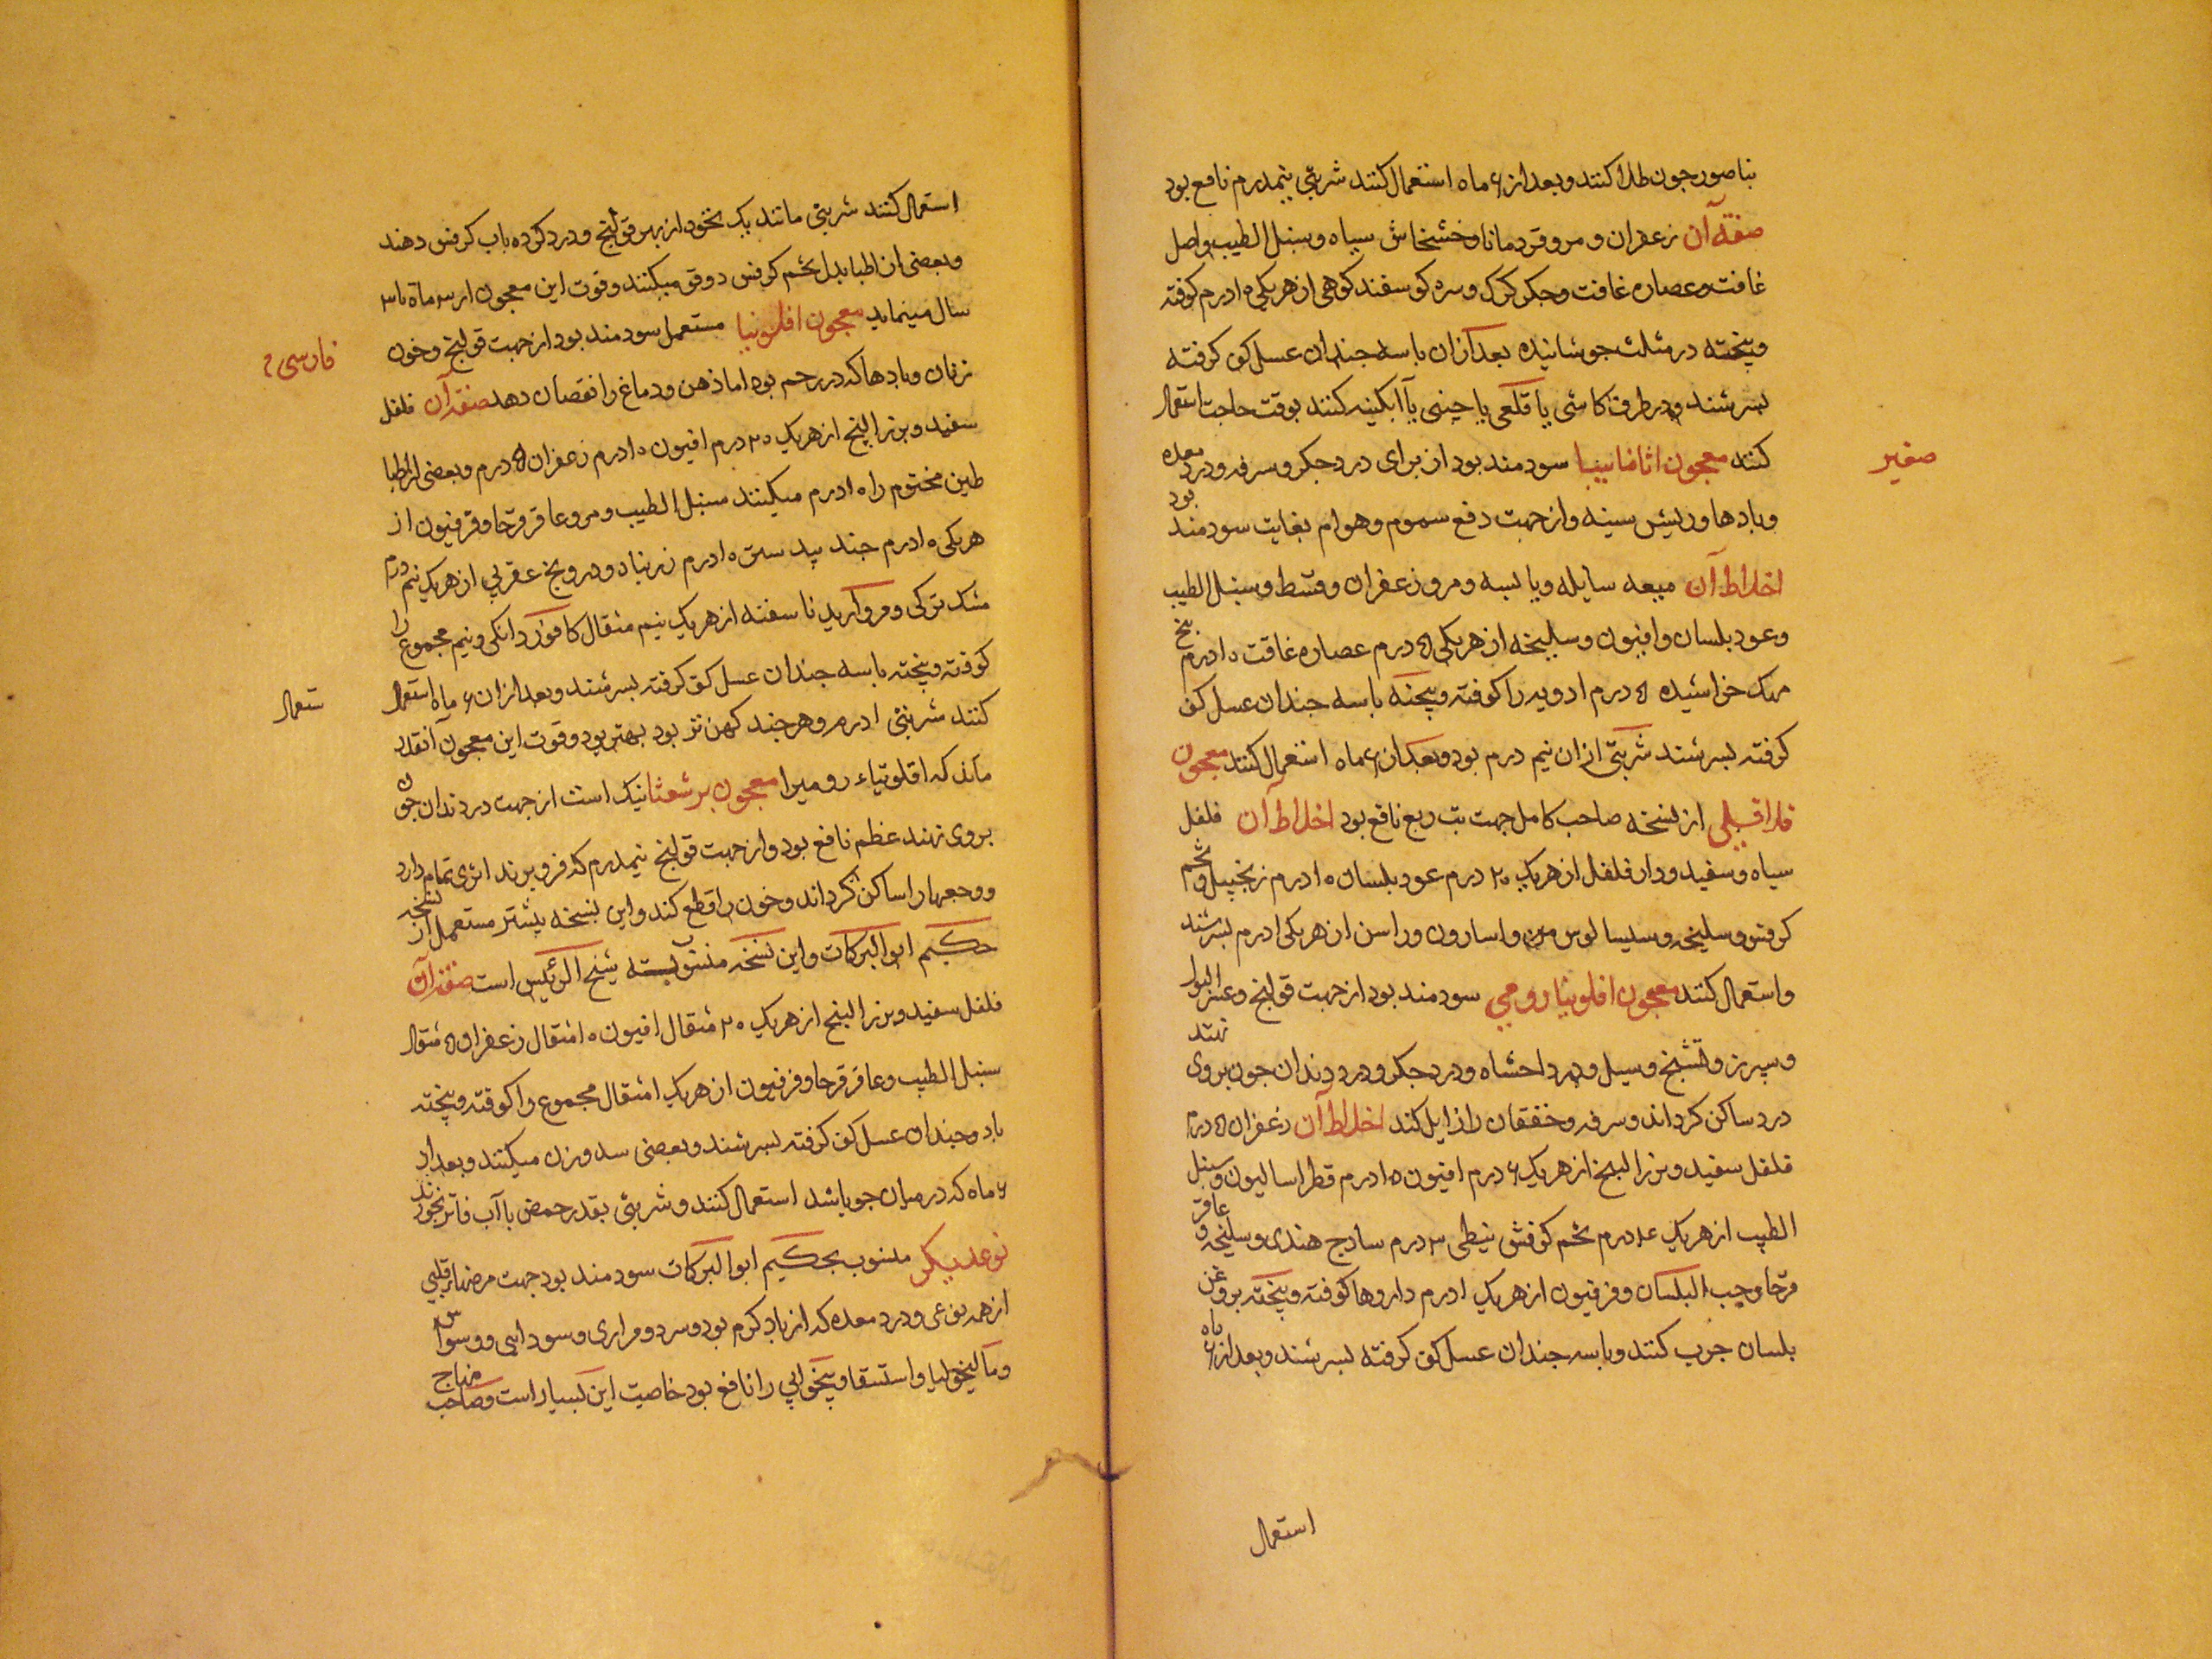 بناصور چون طلا کنند و بعد از ۶ ماه استعمال کنند شربتی نیمدرم نافع بود
صفة آن زعفران و مر و قردمانا و خشخاش سیاه و سنبل الطیب و اصل
غافت و عصاره غافت و جگر کرک و سره کوسفند کوهی از هر یکی ۱۰ درم کوفته
و پخته در مثلث جوشانیده بعد ازان با سه چندان عسل کف کرفته
بسرشند و در ظرف کاشی یا قلعی یا چینی یا آبکینه کنند بوقت حاجت استعمال
کنند معجون اثاناسیا سودمند بود از برای درد جکر و سرفه و درد معده
صغیر
و بادها و ریش سینه و از جهت دفع سموم و هوام بغایت سودمند بود
اخلاط آن میعه سایله و یابسه و مر و زعفران و قسط و سنبل الطیب
و عود بلسان و افیون و سلیخه از هر یکی ۵ درم عصاره غافت ۱۰ درم بیخ
مهک خراشیده ۵ درم ادویه را کوفته و پخته با سه چندان عسل کف
کرفته بسرشند شربتی ازان نیم درم بود و بعد از ۶ ماه استعمال کنند معجون
فلافلی از نسخه صاحب کامل جهت تب ربع نافع بود اخلاط آن فلفل
سیاه و سفید و دار فلفل از هر یک ۲۰ درم عود بلسان ۱۰ درم زنجبیل و تخم
کرفس و سلیخه و سیسالیوس و اسارون و راسن از هر یکی ۱ درم بسرشند
و استعمال کنند معجون افلونیا رومی سودمند بود از جهت قولنج و عسر البول
و سپرز و تشنج و سل و درد احشاء و درد جکر و درد دندان چون بروی نهند
درد ساکن کرداند و سرفه و خفقان را زایل کند اخلاط آن زعفران ۵ درم
فلفل سفید و بزر البنج از هر یک ۶ درم افیون ۱۰ درم فطراسالیون و سنبل
الطیب از هر یک ۴ درم تخم کرفس نبطی ۳ درم سادج هندی و سلیخه و عاقر
قرحا و حب البلسان و فرفیون از هر یک ۱ درم داروها کوفته و پخته بروغن
بلسان چرب کنند و با سه چندان عسل کف کرفته بسرشند و بعد از ۶ ماه
استعمال
استعمال کنند شربتی مانند یک نخود از بهر قولنج و درد کرده باب کرفس دهند
و بعضی از اطبا بدل تخم کرفس دوقو میکنند و قوت این معجون از ۳ ماه تا ۳
سال مینماید معجون افلونیا مستعمل سودمند بود از جهت قولنج و خون
فارسی
زنان و بادها که در رحم بود اما ذهن و دماغ را نقصان دهد صفة آن فلفل
سفید و بزر البنج از هر یک ۲۰ درم افیون ۱۰ درم زعفران ۵ درم و بعضی از اطبا
طین مختوم را ۱۰ درم میکنند سنبل الطیب و مر و عاقر قرحا و فرفیون از
هر یکی ۱۰ درم جند بید ستر ۱۰ درم زرنباد و درونج عقربی از هر یک نیم درم
مشک ترکی و مروارید ناسفته از هر یک نیم مثقال کافور دانکی و نیم مجموع را
کوفته و پخته با سه چندان عسل کف کرفته بسرشند و بعد ازان ۶ ماه استعمال
ستعمال
کنند شربتی ۱ درم و هر چند کهن تر بود بهتر بود و قوت این معجون آنقدر
ماند که افلونیاء رومیرا معجون برشعثا نیک است از جهت درد دندان چون
بروی نهند عظم نافع بود و از جهت قولنج نیمدرم که فرو برند اثری تمام دارد
و وجعها را ساکن کرداند و خون را قطع کند و این نسخه بیشتر مستعمل از نسخه
حکیم ابو البرکات و این نسخه منسوب بشیخ الرئیس است صفة آن
فلفل سفید و بزر البنج از هر یک ۲۰ مثقال افیون ۱۰ مثقال زعفران ۵ مثقال
سنبل الطیب و عاقر قرحا و فرفیون از هر یک ۱ مثقال مجموع را کوفته و پخته
با دو چندان عسل کف کرفته بسرشند و بعضی سه وزن میکنند و بعد از
۶ ماه که در میان جو باشد استعمال کنند و شربتی بقدر حمص با آب فاتر بخورند
نوعدیکر منسوب بحکیم ابو البرکات سودمند بود جهت مرضهاء قلبی
از همه نوعی و درد معده که از باد کرم بود و سرد و مراری و سودایی و وسواس
و مالیخولیا و استسقا و بیخوابی را نافع بود خاصیت این بسیار است و صاحب مزاج